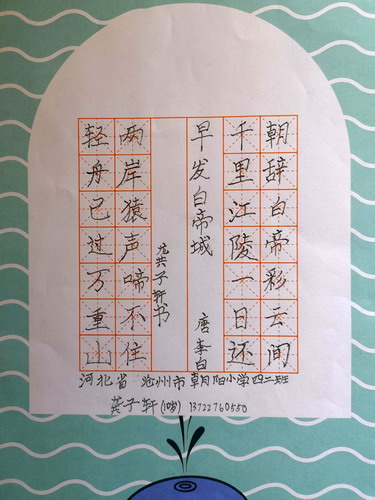 朝辞白帝彩云间
千里江陵一日还
早发白帝城 唐 李白
龙共子轩书
两岸猿声啼不住
轻舟已过万重山
河北省 沧州市朝阳小学四二班
龚子轩(10岁) 13722760550